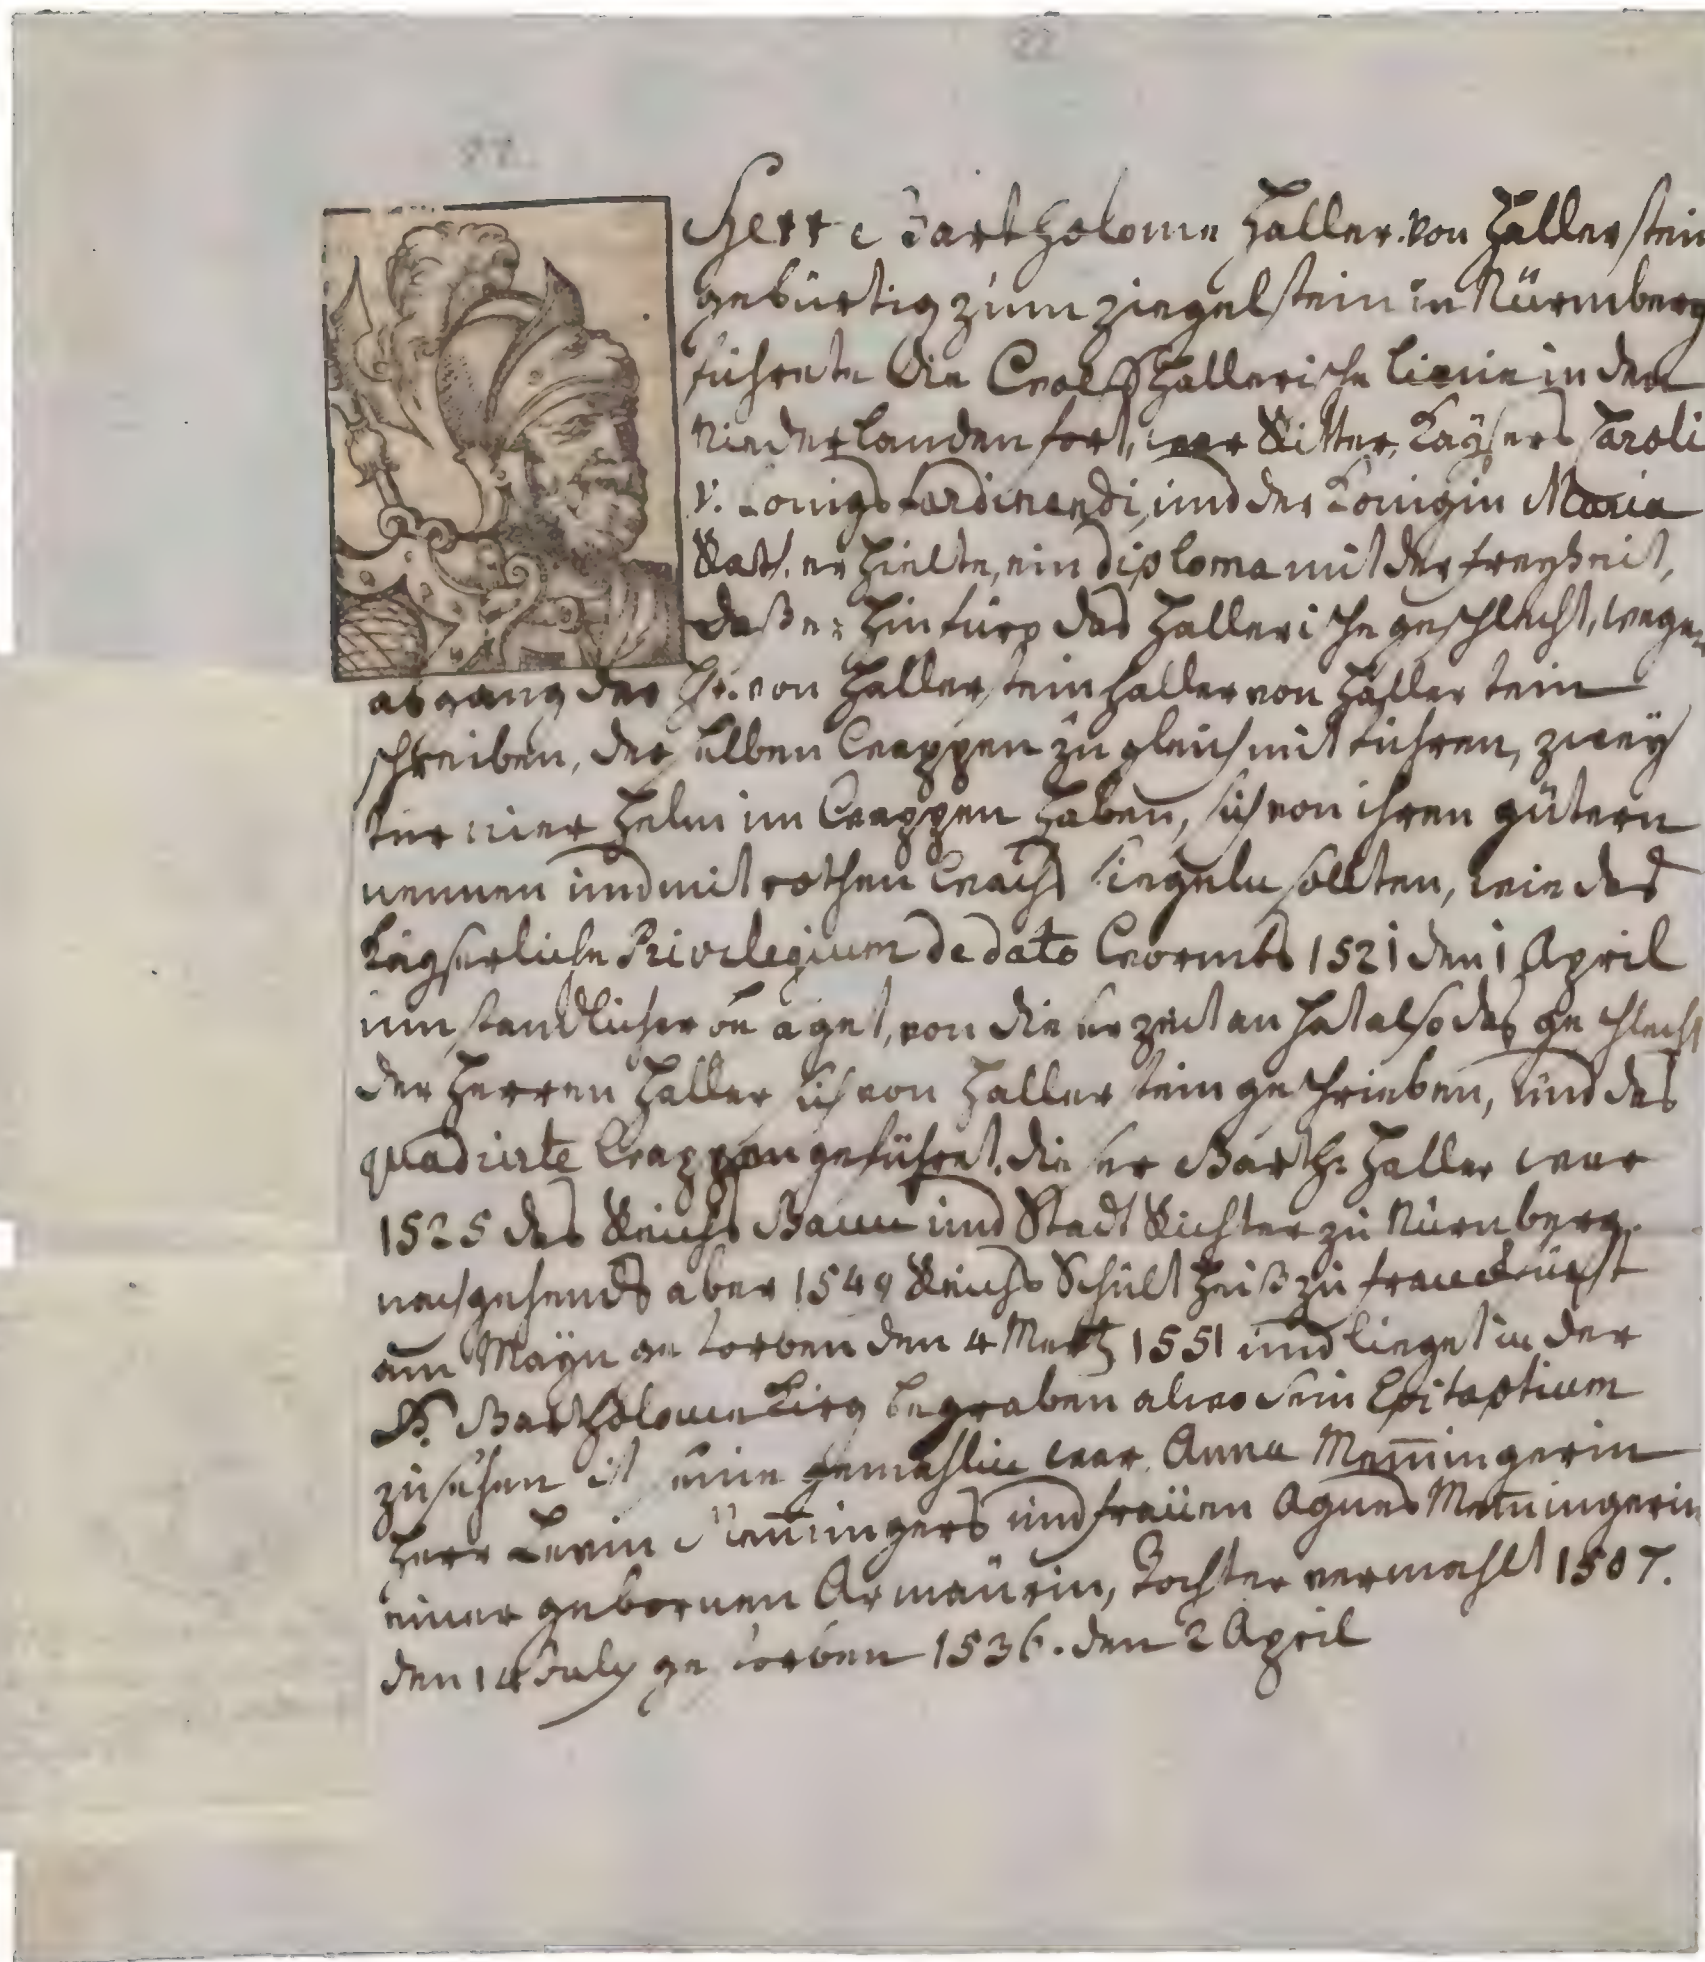 Herr Bartholome Haller von Hallerstein
gebürtig zum ziegelstein in Nürmberg
führete die Wolff Hallerische Linie in den
Niederlanden fort, war Ritter, Kaÿsers Caroli
V. Königs Ferdinandi, und der Königin Maria
Rath. er hielte, ein diploma mit der freyheit,
daß er hinfüro das Hallerische geschlecht, wegen
abgang der Hr. von Hallerstein Haller von Hallerstein
schreiben, derselben Wappen zu gleich mit führen, zweÿ
Helm im Wappen haben, sich von ihren gütern
nennen und mit rothen Wachs siegeln sollten, wie das
Kayserliche Privilegium de dato Wormbs 1521 den 1 April
umständlicher besaget, von dieser zeit an hat also das geschlecht
der Herren Haller sich von Hallerstein geschrieben, und das
quadrirte Wappen geführet. dieser Barth: Haller war
1525 des Reichs Bann und Stadt Richter zu Nürnberg.
nachgehends aber 1549 Reichs Schultheiß zu franckfurst
am Mayn gestorben den 4 Mertz 1551 und lieget in der
St. Bartholome Kirg begraben alwo sein Epitaphium
zu sehen ist seine gemahlin war Anna Mem̄ingerin
Herr Levin Mem̄ingers und frauen Agnes Mem̄ingerin
einer gebornen Armaürin, Tochter vermahlt 1507.
den 14 July gestorben 1536. den 2 April